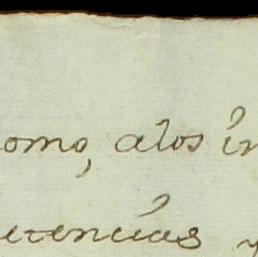 como, alos in
etencias y